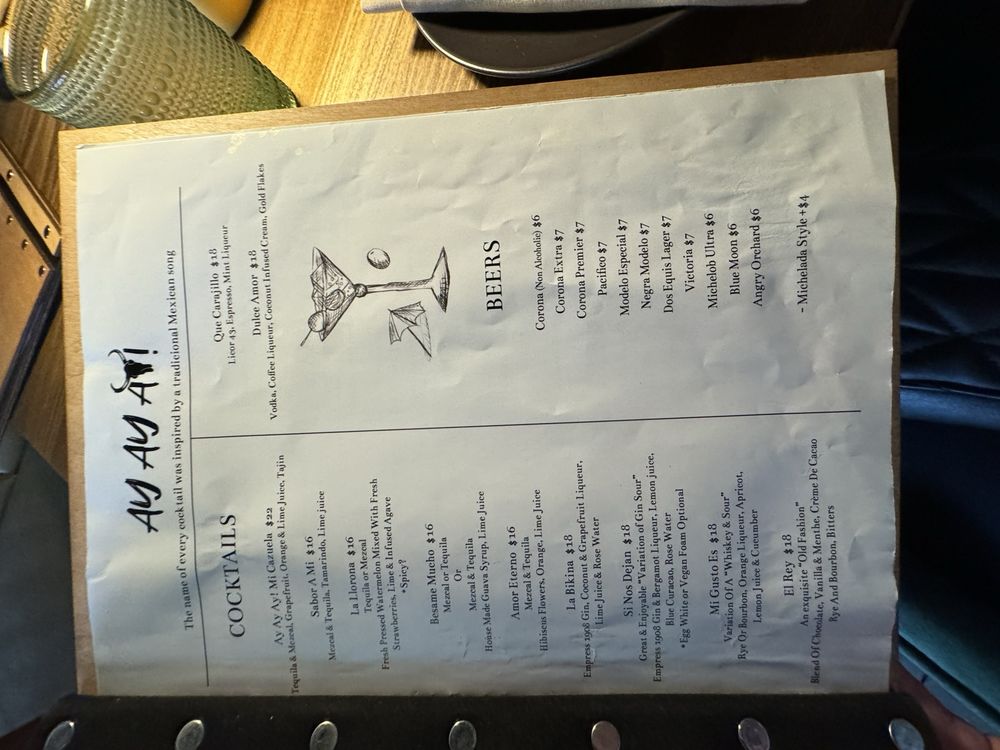 AY AY AY!
The name of every cocktail was inspired by a tradicional Mexican song
COCKTAILS
Ay Ay Ay! Mi Cazuela $22
Tequila & Mezcal, Grapefruit, Orange & Lime Juice, Tajin
Sabor A Mi $16
Mezcal & Tequila, Tamarindo, Lime juice
La Llorona $16
Tequila or Mezcal
Fresh Pressed Watermelon Mixed With Fresh
Strawberries, Lime & Infused Agave
*Spicy?
Besame Mucho $16
Mezcal or Tequila
Or
Mezcal & Tequila
House Made Guava Syrup, Lime Juice
Amor Eterno $16
Mezcal & Tequila
Hibiscus Flowers, Orange, Lime Juice
La Bikina $18
Empress 1908 Gin, Coconut & Grapefruit Liqueur,
Lime Juice & Rose Water
Si Nos Dejan $18
Great & Enjoyable "Variation of Gin Sour"
Empress 1908 Gin & Bergamot Liqueur, Lemon juice,
Blue Curacao, Rose Water
*Egg White or Vegan Foam Optional
Mi Gusto Es $18
Variation Of A "Whiskey & Sour"
Rye Or Bourbon, Orange Liqueur, Apricot,
Lemon Juice & Cucumber
El Rey $18
An exquisite "Old Fashion"
Blend Of Chocolate, Vanilla & Menthe, Crème De Cacao
Rye And Bourbon, Bitters
Que Carajillo $18
Licor 43, Espresso, Mint Liqueur
Dulce Amor $18
Vodka, Coffee Liqueur, Coconut Infused Cream, Gold Flakes
BEERS
Corona (Non Alcoholic) $6
Corona Extra $7
Corona Premier $7
Pacifico $7
Modelo Especial $7
Negra Modelo $7
Dos Equis Lager $7
Victoria $7
Michelob Ultra $6
Blue Moon $6
Angry Orchard $6
- Michelada Style +$4